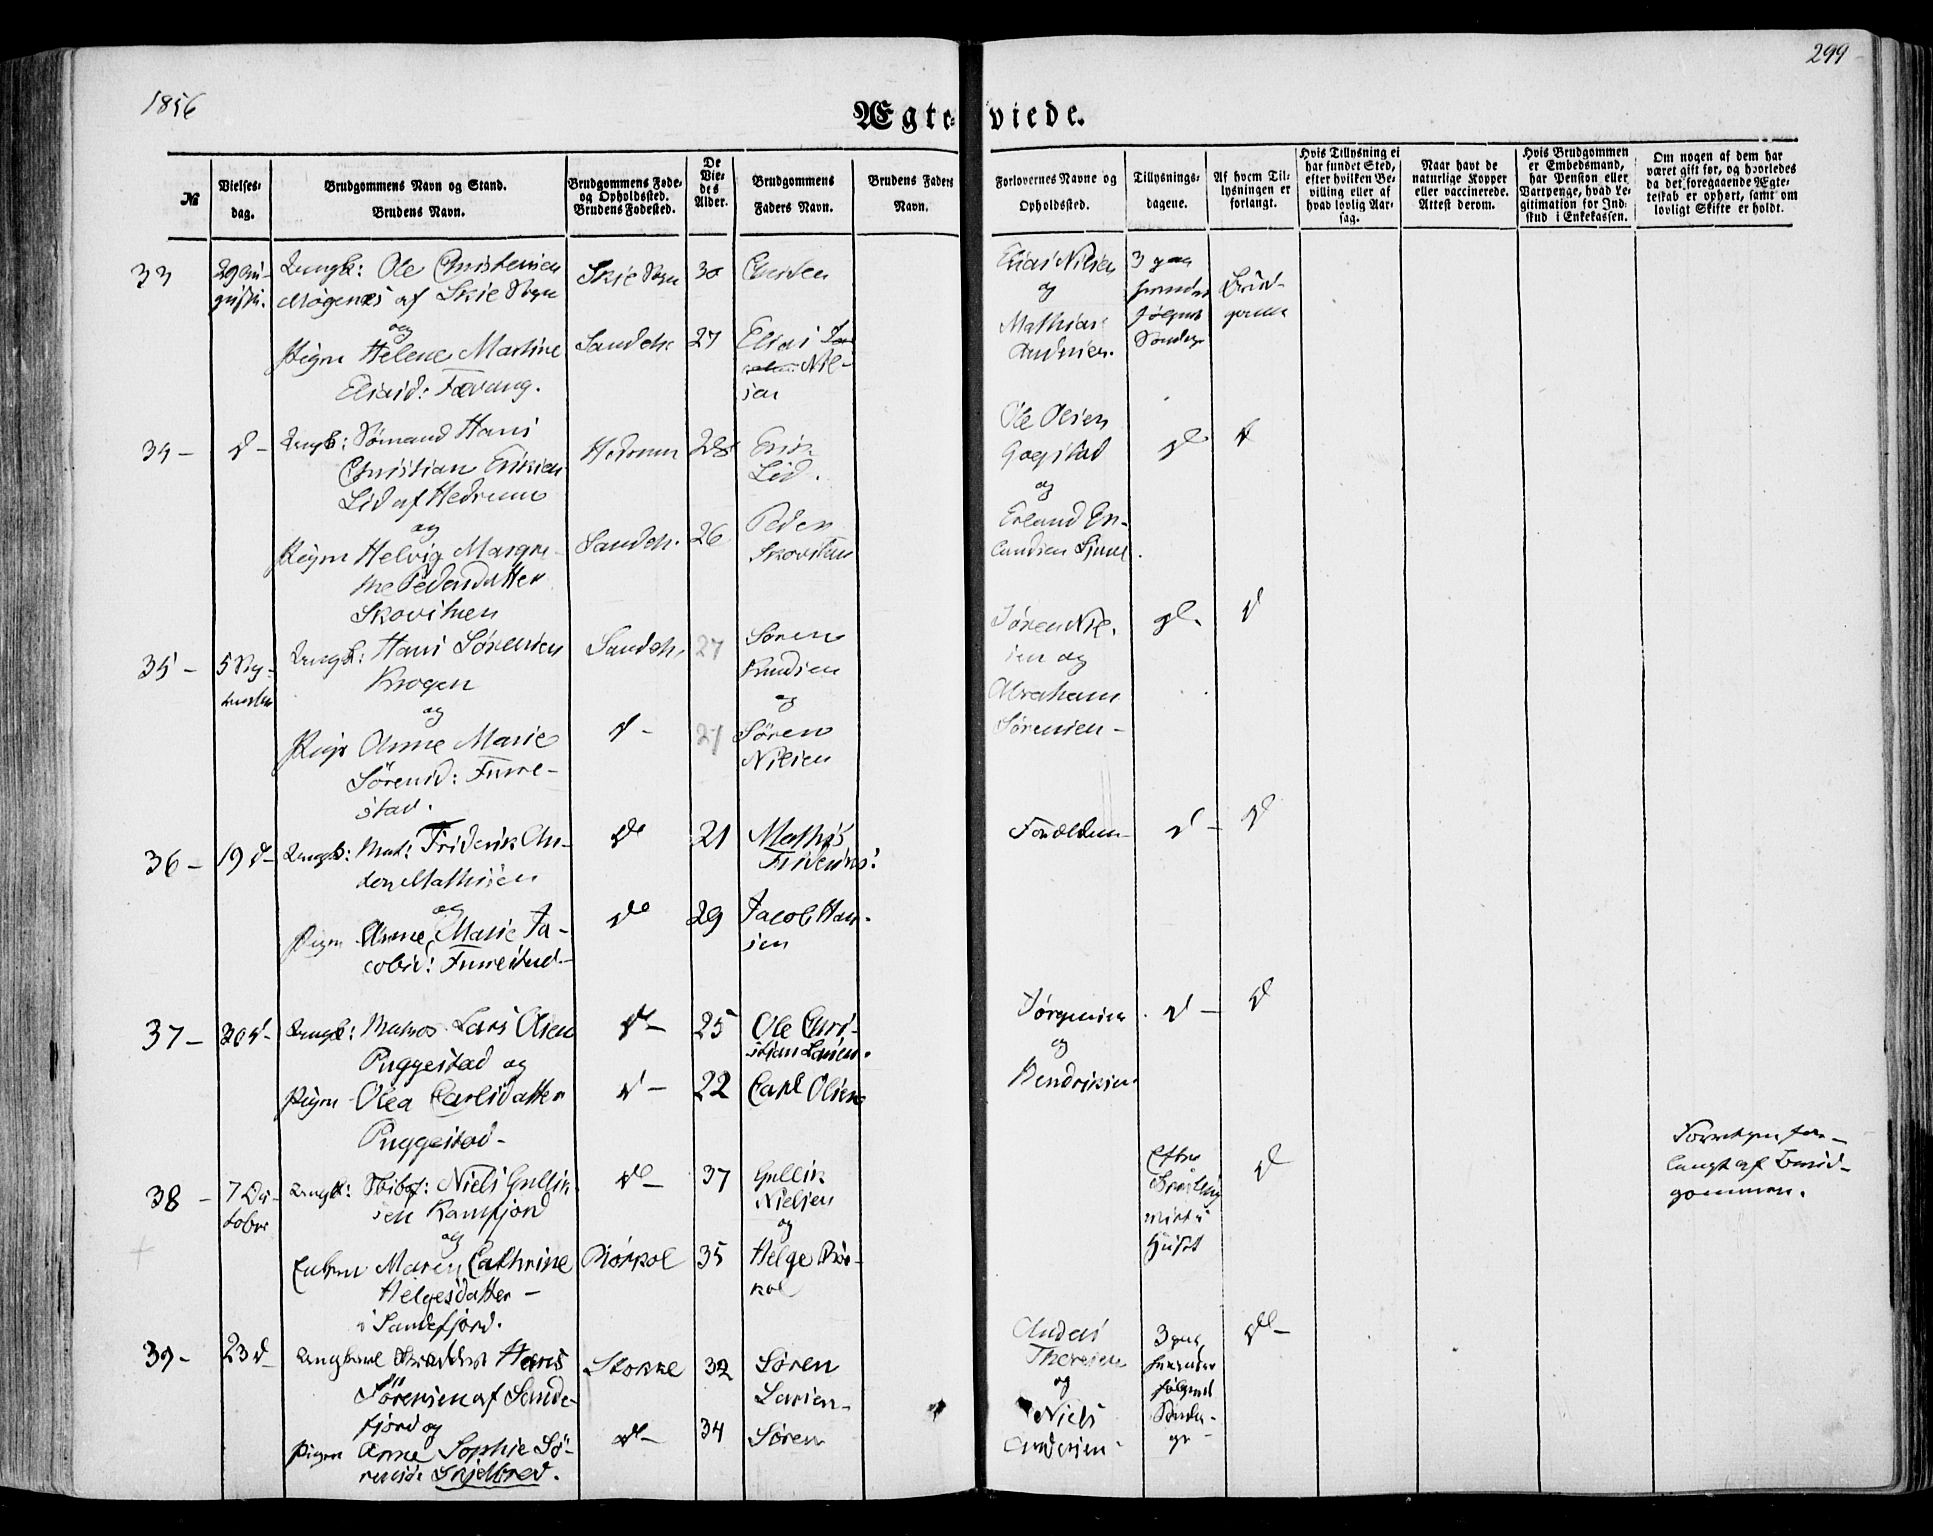 1856
299
Ægte-viede.
№
Vielses-dag.
Brudgommens Navn og Stand.
Brudens Navn.
Brudgommens Føde- og Opholdssted.
Brudens Fødested.
De Vie-des Alder.
Brudgommens Faders Navn.
Brudens Faders Navn.
Forlovernes Navne og Opholdssted.
Tillysnings-dagene.
Af hvem Til-lysningen er forlangt.
Hvis Tillysning ei har fundet Sted, efter hvilken Be-villing eller af hvad lovlig Aar-sag.
Naar havt de naturlige Kopper eller vaccinerede. Attest derom.
Hvis Brudgommen er Embedsmand, har Pension eller Vartpenge, hvad Le-gitimation for Ind-skud i Enkekassen.
Om nogen af dem har været gift før, og hvorledes da det foregaaende Ægte-teskab er ophørt, samt om lovligt Skifte er holdt.
33
29 Au-
gusti.
Ungk: Ole Christensen
Mogenæs af Skie Sogn
og
Pigen Helene Martine
Eliasd: Fævang.
Skie Sogn
Sandeh.
30
27
Elias
Niel-
sen
Elias Nilsen
og
Mathias
Andersen.
3 paa
Søndage
Brud-
gommen
34 -
d -
Ungk: Sømand Hans
Christian Eriksen
Lid af Hedrum
og
Pigen Helvig Margre-
the Pedersdatter
Skovituen
Hedrum
Sandeh.
28
26
Erik
Lid.
Peder
Skovituen
Ole Olsen
Gogstad
og
Erland Er-
landsen
d
d
35 -
5 Sep-
Ungk: Hans Sørensen
Krogen
og
Pige Anne Marie
Sørensd: Furre-
stad.
Sandeh.
d -
27
27
Søren
Knudsen
og
Søren
Nilsen
Søren Nil-
sen og
Abraham
Sørensen -
d
d
36 -
19 d -
Ungk: Mat: Friderik An-
ders Mathisen
og
Pigen Anne Marie Ja-
cobsd: Furrestad -
do
do
21
29
Mathis
Frideriks:
Jacob Han-
sen
Forældrene
d -
d
37 -
30 d -
Ungk: Matros Lars Olsen
Puggestad og
Pigen Olea Carlsdatter
Puggestad -
do -
d -
25
22
Ole Chri-
stian Larsen.
Carl Olsen
Jørgensen
og
Hendriksen
d -
d
38 -
7 Oc-
tober
Ungk: Skibsf: Niels Gullik-
sen Kamfjord
og
Enken Maren Cathrine
Helgesdatter -
i Sandefjord.
do -
Biørkol
37
35
Gullik
Nielsen
og
Helge Biør-
kol
Efter
i
Huset
d
Forretgen for-
langt af Brud-
gommen.
39 -
23 d -
Ungkarl Skrædder Hans
Sørensen af Sande-
fjord og
Pigen Anne Sophie Sø-
rensd: Skjelbred.
Stokke
do -
32
34
Søren
Larsen -
Søren
Anders
Thoresen
og
Niels
Andersen -
3 paa
hinanden
følgende
Sønda-
ge -
do -